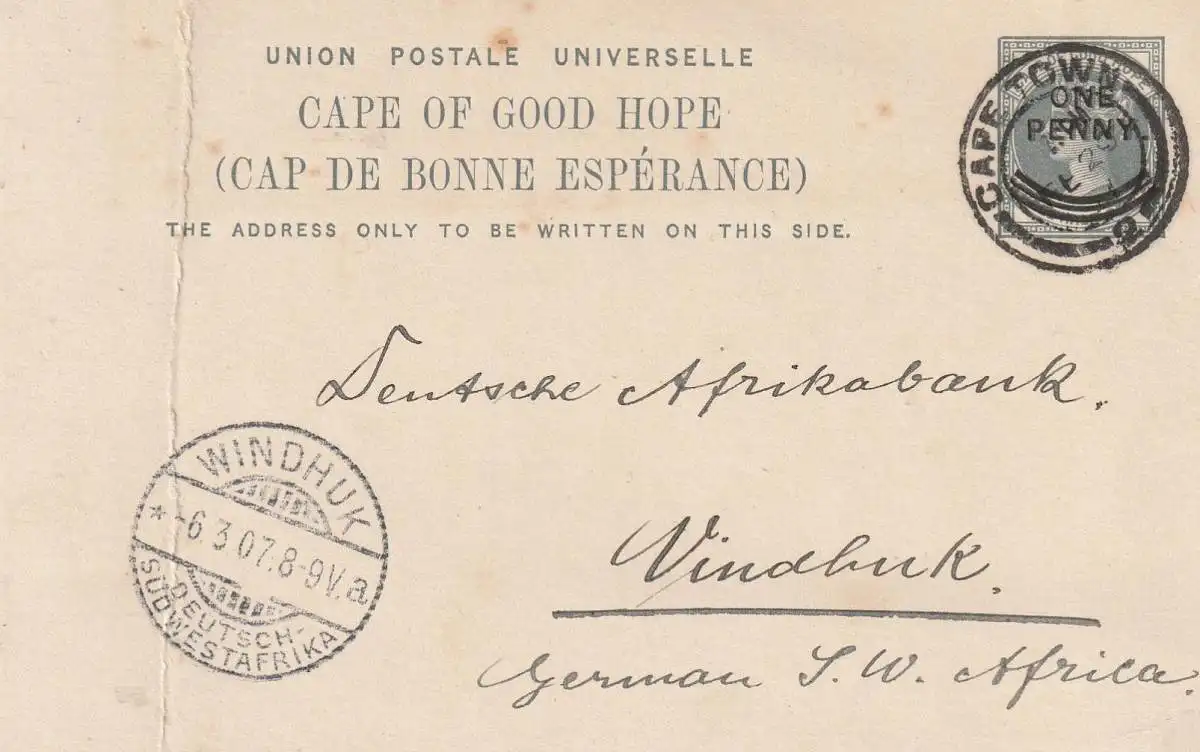 UNION POSTALE UNIVERSELLE
CAPE OF GOOD HOPE
(CAP DE BONNE ESPÉRANCE)
THE ADDRESS ONLY TO BE WRITTEN ON THIS SIDE.
CAPE TOWN
ONE
PENNY.
Deutsche Afrikabank.
Windhuk.
German S. W. Africa.
WINDHUK
* -6.3.07.8-9V. a
DEUTSCH-
SÜDWESTAFRIKA